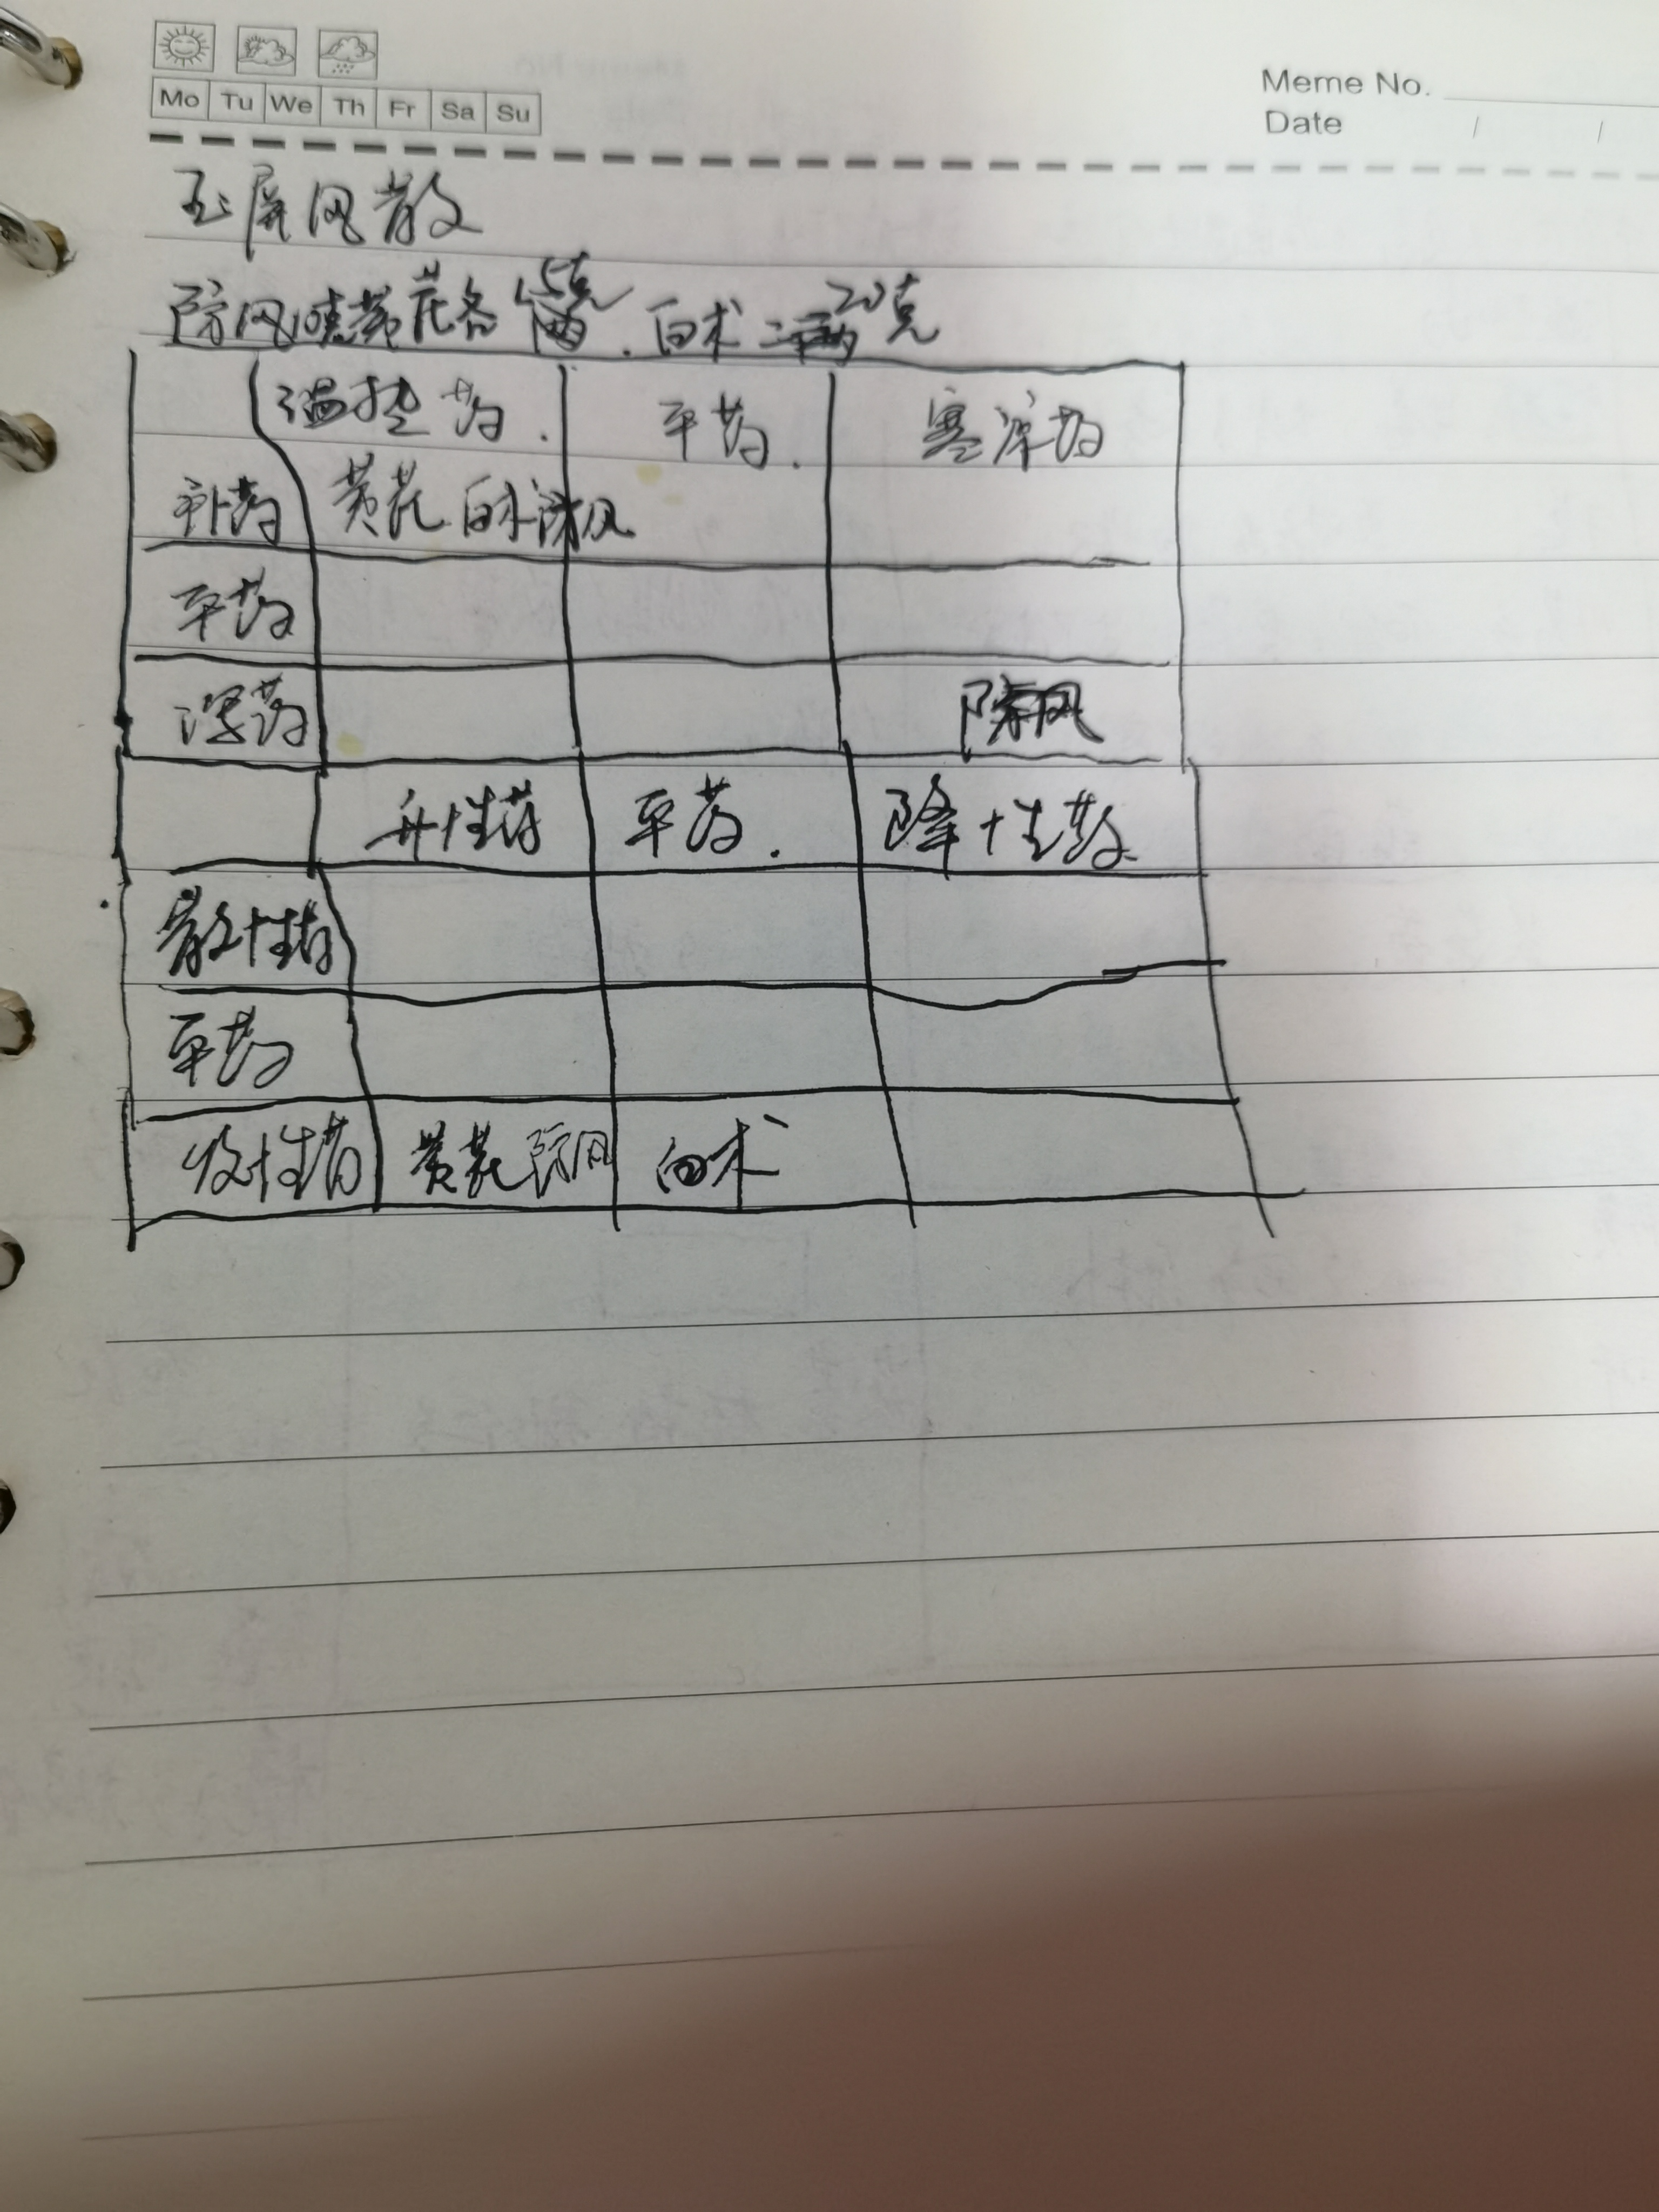 Mo Tu We Th Fr Sa Su
Meme No.
Date / /
玉屏风散
防风 黄芪各 15克. 白术二两20克
温热药. 平药. 寒凉药
补药 黄芪 白术 防风
平药
泻药 防风
升性药 平药. 降性药
散性药
平药
收性药 黄芪 防风 白术